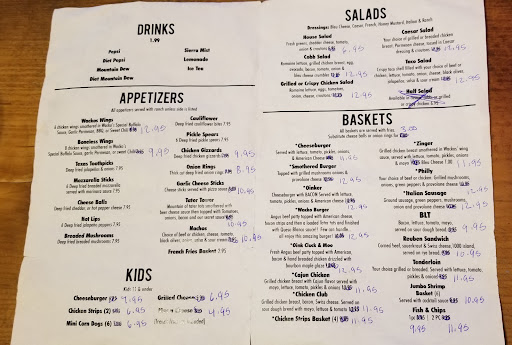 DRINKS
1.99
Pepsi
Sierra Mist
Diet Pepsi
Lemonade
Mountain Dew
Ice Tea
Diet Mountain Dew
APPETIZERS
All appetizers served with ranch unless side is listed
Wackos Wings
6 chicken wings smothered in Wacko's Special
Buffalo Sauce, Garlic Parmesan, BBQ, or Sweet Chili 12.95
Boneless Wings
Sauce, Garlic Parmesan, or Sweet Chili 9.95
Texas Toothpicks
Deep fried jalapeño & onions 7.95
Mozzarella Sticks
6 Deep fried breaded mozzarella
served with marinara sauce 7.95
Cheese Balls
Deep fried cheddar, or hot pepper cheese 7.95
Hot Lips
6 Deep fried jalapeño poppers 7.95
Breaded Mushrooms
Deep fried breaded mushrooms 7.95
Cauliflower
Deep fried cauliflower bites 7.95
Pickle Spears
6 Deep fried pickle spears 7.95
Chicken Gizzards
Deep fried chicken gizzards 9.95
Onion Rings
Thick cut deep fried onion rings 8.95
Garlic Cheese Sticks
Cheese sticks served with pizza sauce 10.95
Tater Tower
Mountain of tater tots smothered with
beer cheese sauce then topped with Tomatoes,
onions, bacon and our secret sauce 10.95
Nachos
Choice of beef or chicken, cheese, tomato,
black olives, onion, salsa & sour cream 10.95
French Fries Basket 7.95
KIDS
Kids 11 & under
Cheeseburger 7.95
Chicken Strips (2) 6.95
Mini Corn Dogs (6) 6.95
Grilled Cheese 6.95
4.95
SALADS
Dressings: Bleu Cheese, Caesar, French, Honey Mustard, Italian & Ranch
House Salad
Fresh greens, cheddar cheese, tomato,
onion, and croutons 6.95
Cobb Salad
Romaine lettuce, grilled chicken breast, egg,
avocado, bacon, tomato, onion &
bleu cheese crumbles 12.95
Grilled or Crispy Chicken Salad
Romaine lettuce, eggs, tomatoes,
onions, cheese, croutons 12.95
Caesar Salad
Your choice of grilled or breaded chicken
breast, Parmesan cheese, tossed in Caesar
dressing & croutons 12.95
Taco Salad
Crispy taco shell filled with your choice of chicken or
beef, lettuce, tomato, onion, cheese, black olives,
jalapeños, salsa & sour cream 12.95
Half Salad
BASKETS
All baskets are served with fries.
Substitute cheese balls or onion rings for 3.00
*Cheeseburger
Served with lettuce, tomato, pickles, onions,
& American Cheese 11.95
*Smothered Burger
Topped with grilled mushrooms, onions &
provolone cheese 12.95
*Oinker
Cheeseburger with BACON Served with lettuce,
tomato, pickles, onions, & American cheese 12.95
*Wacko Burger
Angus beef patty topped with American cheese,
bacon strips and then a loaded Tater Tots and finished
with Guess Blanca sauce!! Few can handle
all enjoy this amazing burger! 12.95
*Oink Cluck & Moo
Fresh Angus beef patty topped with American,
Bacon & hand breaded chicken drizzled with
bourbon maple glaze 12.95
*Cajun Chicken
Grilled chicken breast with Cajun flavor served with
mayo, lettuce, tomato, pickles & onions 11.95
*Chicken Club
Grilled chicken breast, bacon, Swiss cheese. Served on
sour dough bread with mayo, lettuce, tomato & onion 11.95
*Chicken Strips Basket (4) 11.95
*Zinger
Grilled chicken breast smothered in Wackos' wing
sauce, served with lettuce, tomato, pickle, onions,
& mayo 11.95
*Philly
Your choice of beef or chicken. Grilled mushrooms,
onions, green peppers & provolone cheese 11.95
*Italian Sausage
Ground sausage, green peppers, mushrooms,
onion and provolone cheese 12.95
BLT
Bacon, lettuce, tomato, mayo,
served on our dough bread 9.95
Reuben Sandwich
Corned beef, sauerkraut & Swiss cheese, 1000 island,
served on rye bread 10.95
Tenderloin
Your choice grilled, or breaded. Served with lettuce, tomato,
pickles & onions 11.95
Jumbo Shrimp
Basket (6)
Served with cocktail sauce 10.95
Fish & Chips
1pc 2 PC
9.95 11.95